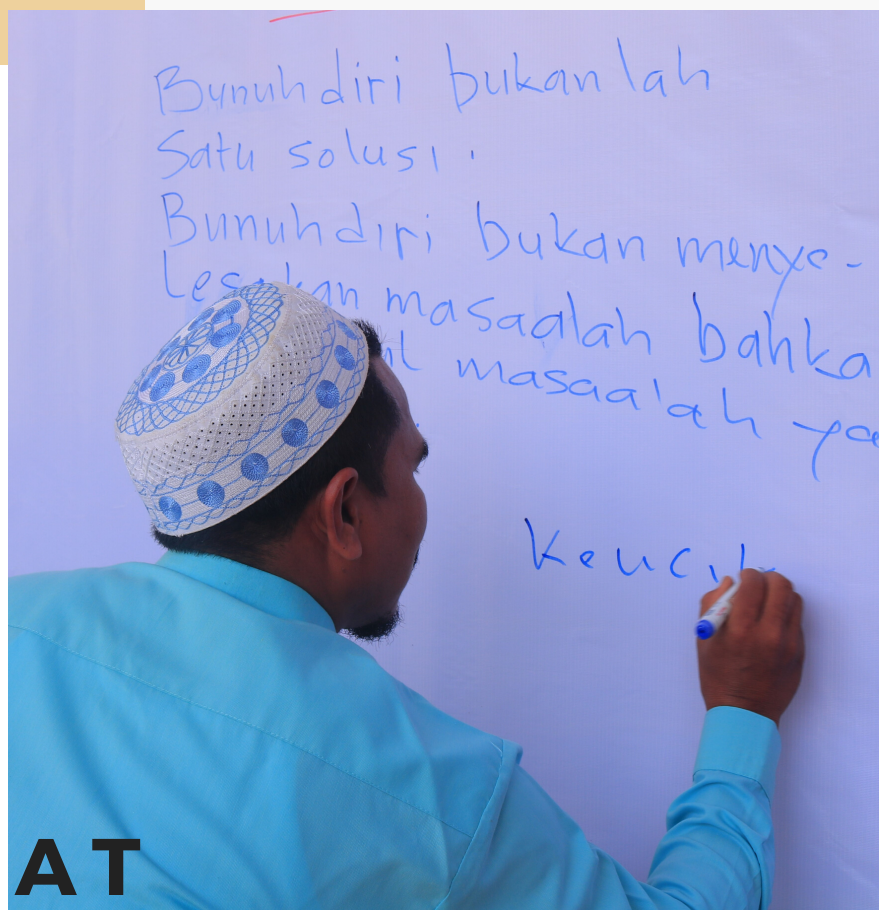 Bunuh diri bukan lah
Satu solusi.
Bunuh diri bukan menye-
masaalah bahka
masaalah
AT